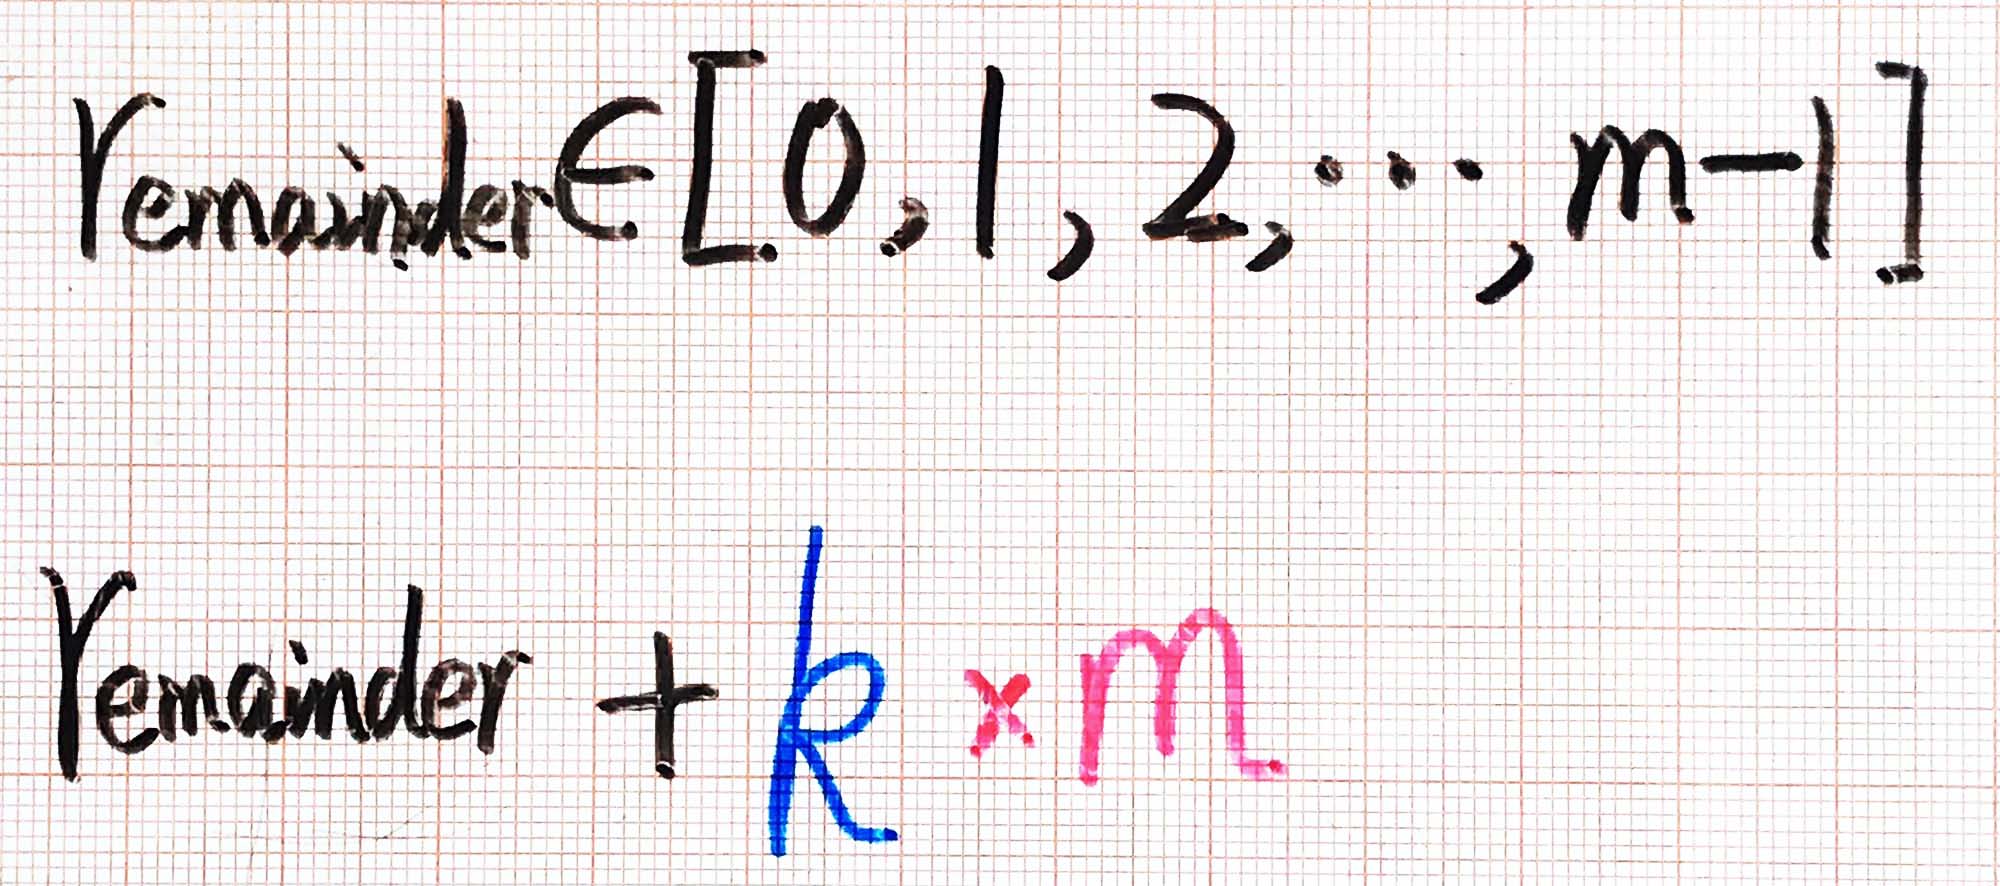 remainder ∈ [0, 1, 2, ..., m-1]
remainder + k × m